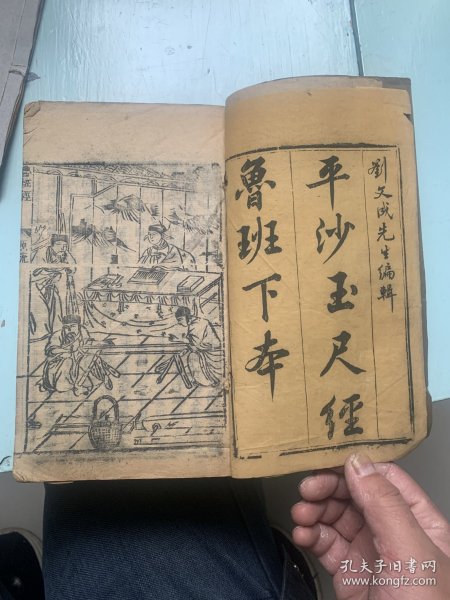 劉文成先生編輯
平沙玉尺經
魯班下本
魯班經
孔夫子旧书网
www.kongfz.com